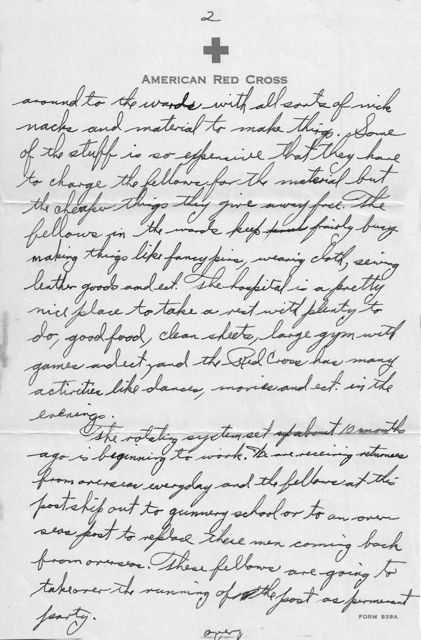 2
AMERICAN RED CROSS
around to the wards with all sorts of nick
nacks and material to make things. Some
of the stuff is so expensive that they have
to charge the fellows for the material but
the cheaper things they give away free. The
fellows in the wards keep fairly busy
making things like fancy pins, weaving cloth, sewing
leather goods and ect. The hospital is a pretty
nice place to take a rest with plenty to
do, good food, clean sheets, large gym with
games and ect, and the Red Cross has many
activities like dances, movies and ect. in the
evenings.
The rotating system set up about 10 months
ago is beginning to work. We are receiving returnees
from overseas everyday and the fellows at this
post ship out to gunnery school or to an over
seas post to replace these men coming back
from overseas. These fellows are going to
takeover the running of the post as permanent
party.
FORM 539A
over